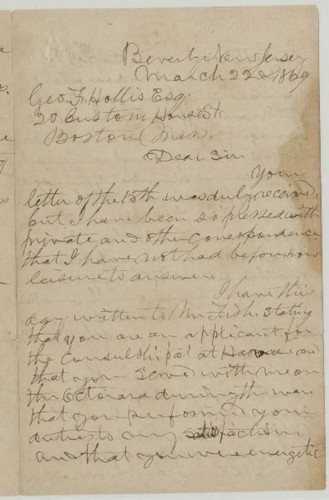 Beverly New Jersey
March 22d 1869
Geo. F. Hollis Esq
20 Custom House St
Boston Mass.
Dear Sir
Your
letter of the 15th was duly received
but I have been so pressed with
private and other correspondence
that I have not had before now
leisure to answer.
I have this
day written to Mr Fish stating
that you are an applicant for
the Consulship at and
that you served with me on
the Octorara during the war
that you performed your
duties to my satisfaction
and that you were energetic